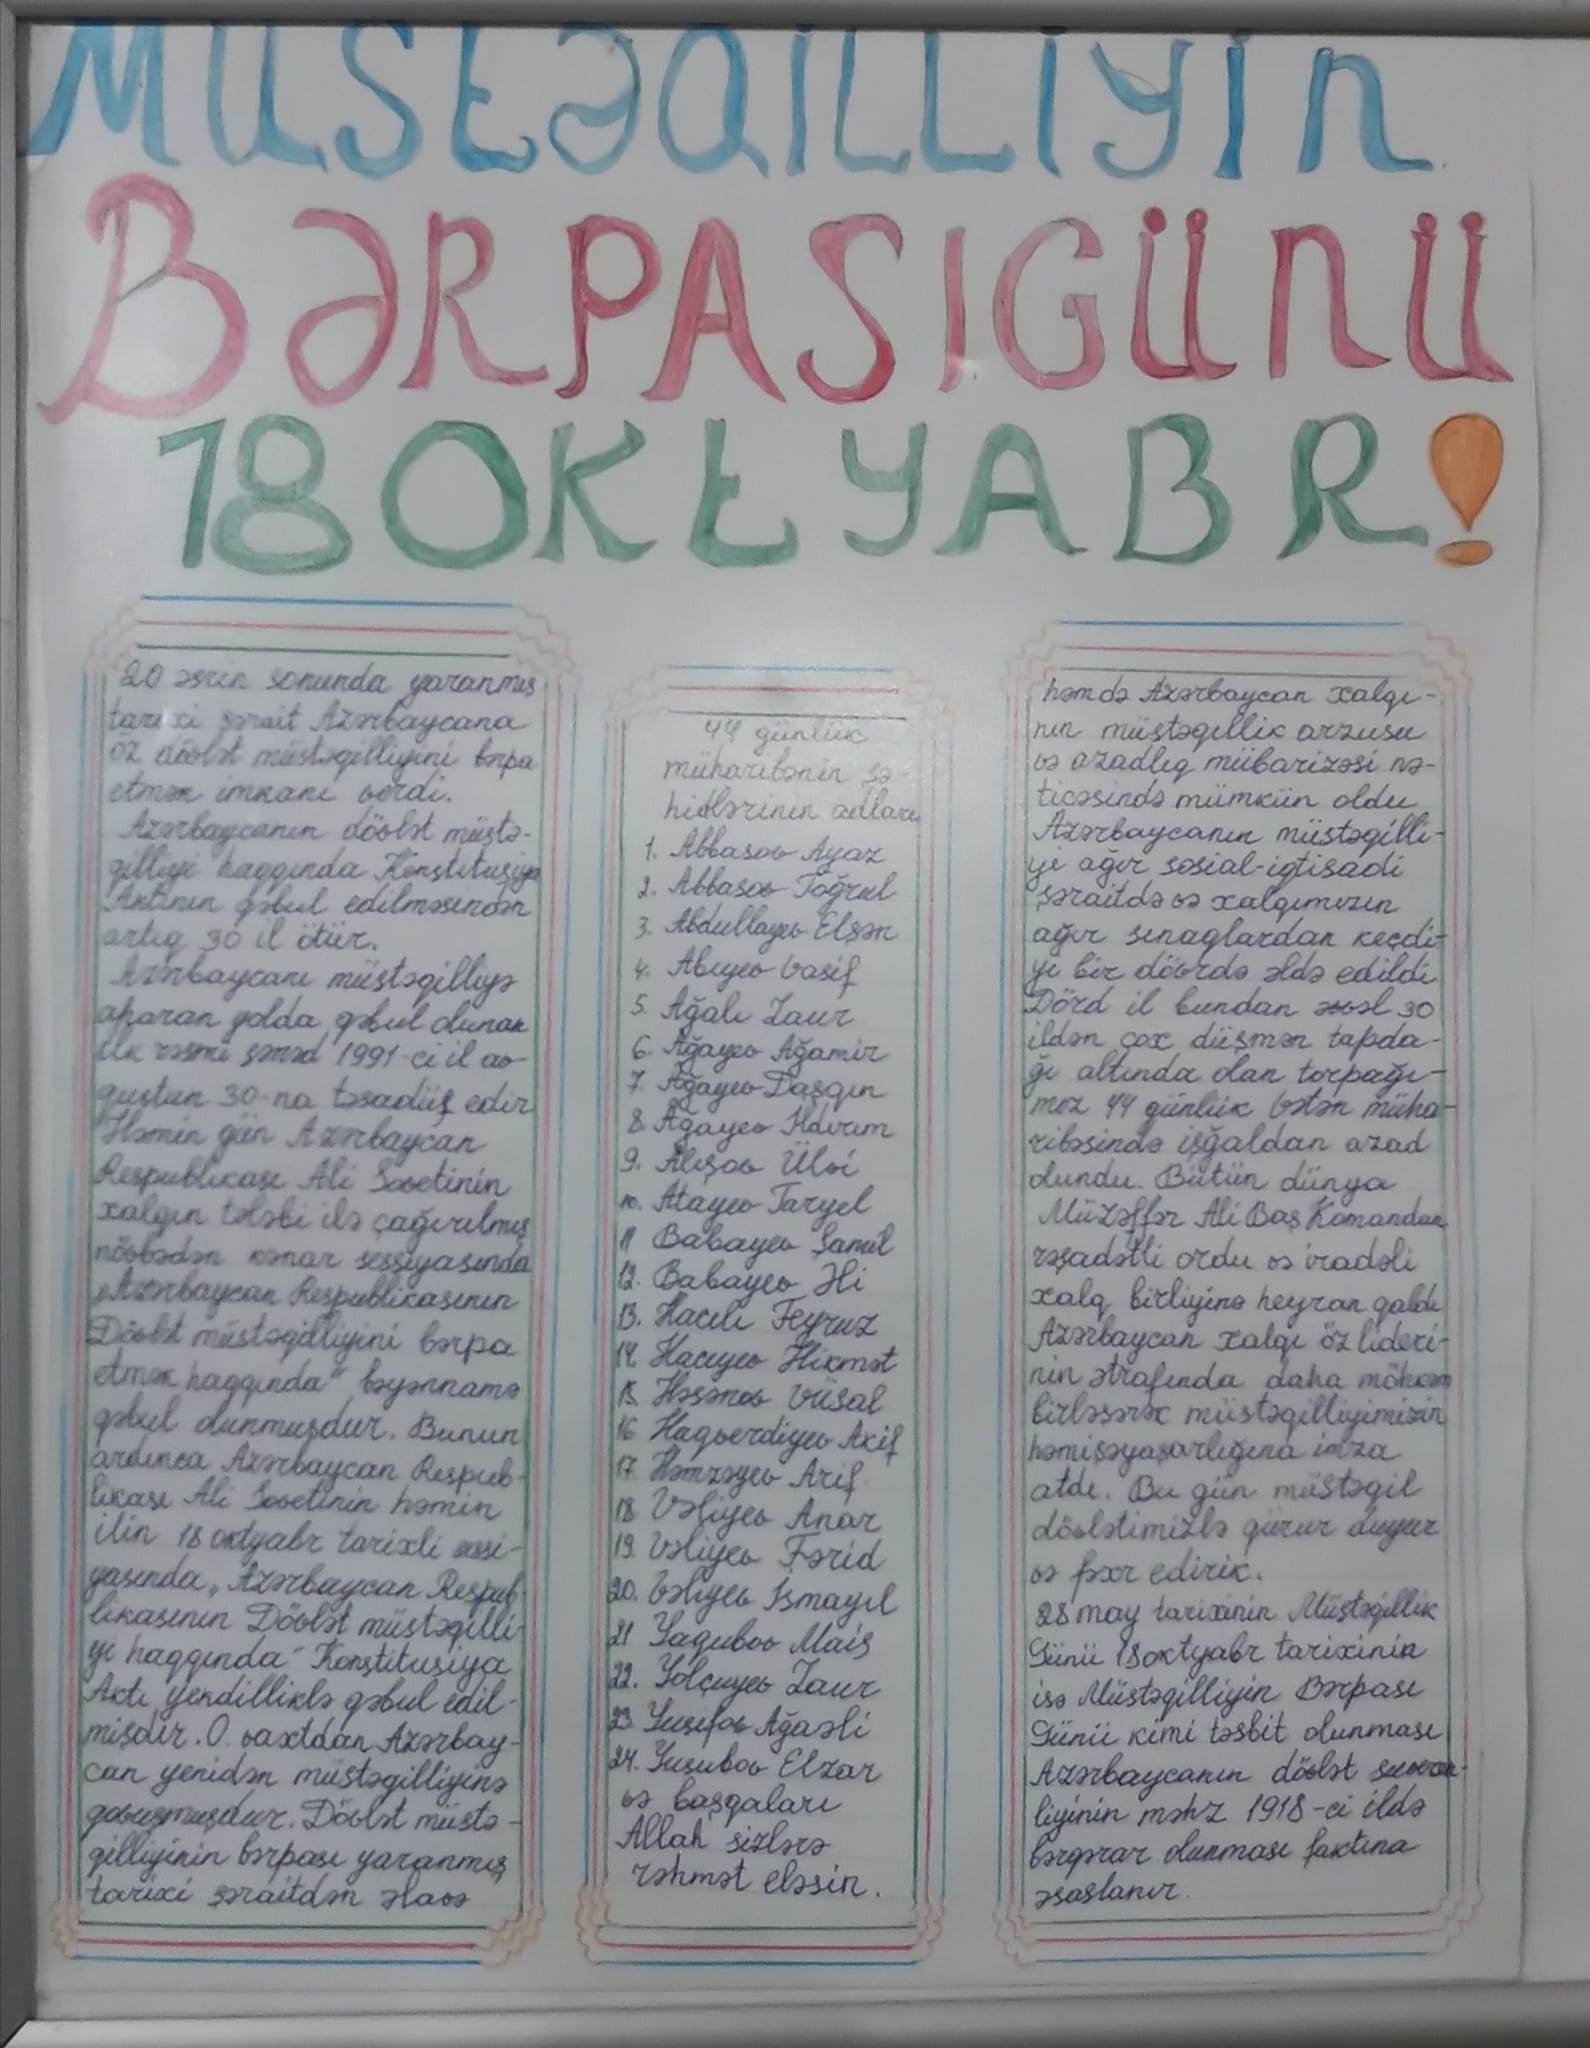 MÜSTƏQİLLİYİN
BƏRPASI GÜNÜ
18 OKTYABR!
20 əsrin sonunda yaranmış
tarixi şərait Azərbaycana
öz dövlət müstəqilliyini bərpa
etmək imkanı verdi.
Azərbaycanın dövlət müstə-
qilliyi haqqında Konstitusiya
Aktının qəbul edilməsindən
artıq 30 il ötür.
Azərbaycanı müstəqilliyə
aparan yolda qəbul olunan
ilk rəsmi sənəd 1991-ci il av-
qustun 30-na təsadüf edir
Həmin gün Azərbaycan
Respublikası Ali Sovetinin
xalqın tələbi ilə çağırılmış
növbədən kənar sessiyasında
„Azərbaycan Respublikasının
Dövlət müstəqilliyini bərpa
etmək haqqında“ bəyənnamə
qəbul olunmuşdur. Bunun
ardınca Azərbaycan Respub-
likası Ali Sovetinin həmin
ilin 18 oktyabr tarixli sesi-
yasında „Azərbaycan Respub-
likasının Dövlət müstəqilli-
yi haqqında“ Konstitusiya
Aktı yekdilliklə qəbul edil-
mişdir. O vaxtdan Azərbay-
can yenidən müstəqilliyinə
qovuşmuşdur. Dövlət müstə-
qilliyinin bərpası yaranmış
tarixi şəraitdən əlavə
44 günlük
müharibənin şə-
hidlərinin adları
1. Abbasov Ayaz
2. Abbasov Toğrul
3. Abdullayev Elşən
4. Abıyev Vasif
5. Ağalı Zaur
6. Ağayev Ağamir
7. Ağayev Daşqın
8. Ağayev İldırım
9. Alışov Ülvi
10. Atayev Taryel
11 Babayev Şamil
12. Babayev Əli
13. Hacılı Feyruz
14 Hacıyev Hikmət
15 Həsənov Vüsal
16 Haqverdiyev Akif
17. Həmzəyev Arif
18 Vəliyev Anar
19. Vəliyev Fərid
20. Vəliyev İsmayıl
21 Yaqubov Mais
22. Yolçuyev Zaur
23. Yusifov Ağaəli
24. Yusubov Elzar
və başqaları
Allah sizlərə
rəhmət eləsin.
həmdə Azərbaycan xalqı-
nın müstəqillik arzusu
və azadlıq mübarizəsi nə-
ticəsində mümkün oldu
Azərbaycanın müstəqilli-
yi ağır sosial-iqtisadi
şəraitdə və xalqımızın
ağır sınaqlardan keçdi-
yi bir dövrdə əldə edildi
Dörd il bundan əvəl 30
ildən çox düşmən tapda-
ğı altında olan torpağı-
mız 44 günlük Vətən müha-
ribəsində işğaldan azad
olundu. Bütün dünya
Müzəffər Ali Baş Komandan
rəşadətli ordu və iradəli
xalq birliyinə heyran qaldı
Azərbaycan xalqı öz lideri-
nin ətrafında daha möhkəm
birləşərək müstəqilliyimizin
həmişəyaşarlığına imza
atdı. Bu gün müstəqil
dövlətimizlə qürur duyur
və fəxr edirik.
28 may tarixinin Müstəqillik
Günü 18 oktyabr tarixinin
isə Müstəqilliyin Bərpası
Günü kimi təsbit olunması
Azərbaycanın dövlət suveren-
liyinin məhz 1918-ci ildə
bərqərar olunması faktına
əsaslanır.